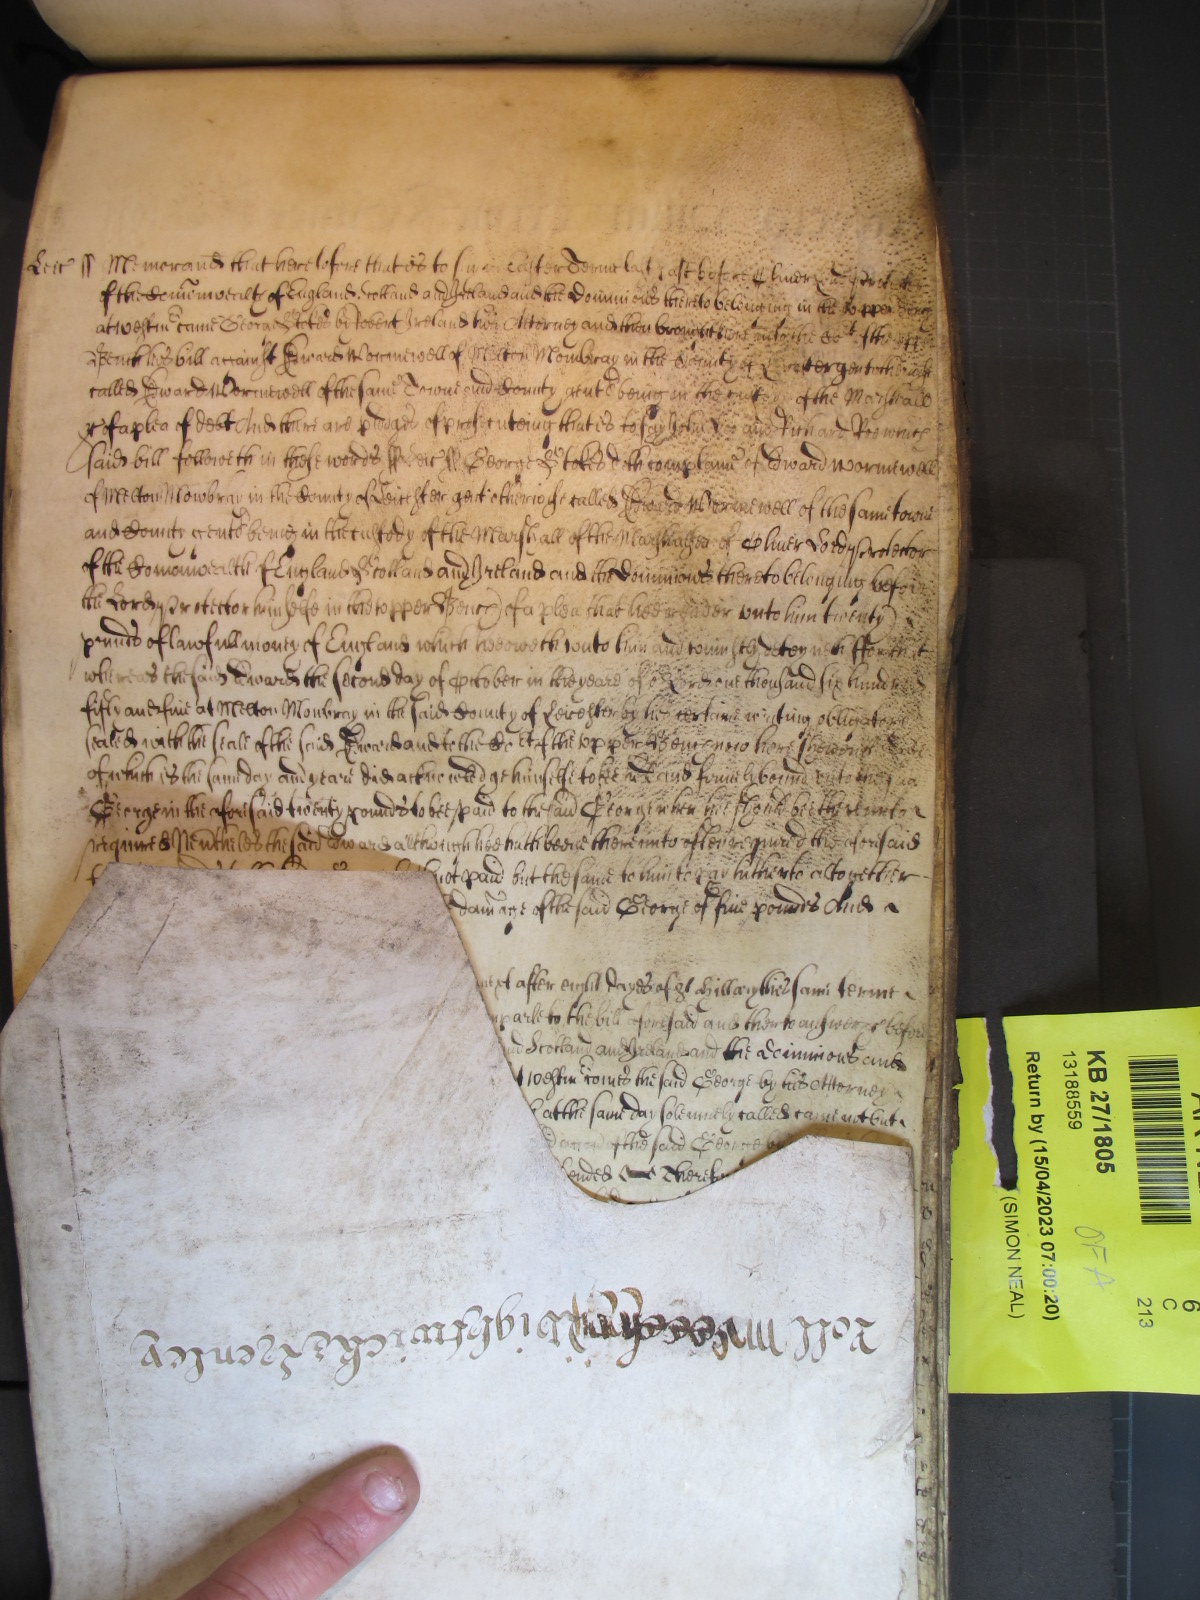 Leic ss Memorand that heretofore that is to say in Easter Terme last past before Oliver Lord Protector
of the Comonwealth of England Scotland and Ireland and the Dominions thereto belonging in the upper Bench
at Westm came George Stokes by Robert Ireland his Attorney and then brought here into the Court of the upper
Bench his bill against Edward Wormewell of Melton Mowbray in the County of Leicester gent otherwise
called Edward Wormewell of the same Towne and County gent being in the custody of the Marshall
of a plea of debt And there are pledges of prosecuteing that is to say John Doe and Richard Roe which
said bill followeth in these words Leic ss George Stokes doth complaine of Edward Wormewell
of Melton Mowbray in the County of Leicester gent otherwise called Edward Wormewell of the same towne
and County gent being in the custody of the Marshall of the Marshalsea of Oliver Lord Protector
of the Comonwealth of England Scotland and Ireland and the Dominions thereto belonging before
the Lord Protector himselfe in the upper Bench of a plea that hee render unto him twenty
pounds of lawfull money of England which hee oweth unto him and uniustly deteyneth for that
whereas the said Edward the second day of October in the yeare of o Lord one thousand six hundred
fifty and five at Melton Mowbray in the said County of Leicester by his certaine writing obligatory
sealed with the seale of the said Edward and to the Court of the upper Bench now here shewed the date
of which is the same day and yeare did acknowledge himselfe to be held and firmely bound unto the said
George in the aforesaid twenty pounds to bee paid to the said George when hee should bee thereunto
required Neverthelesse the said Edward although hee hath beene thereunto often required the aforesaid
not paid but the same to him to pay hitherto altogether
damage of the said George of five pounds And
next after eight dayes of St Hillary this same terme
imparle to the bill aforesaid and then to answere before
and Scotland and Ireland and the Dominions
Westm comes the said George by his Attorney
at the same day solemnely called came not but
of the said George
Therefore
Roll Wightwicke Henley
KB 27/1805
13188559
Return by (15/04/2023 07:00:20)
(SIMON NEAL)
OFA
6
C
213